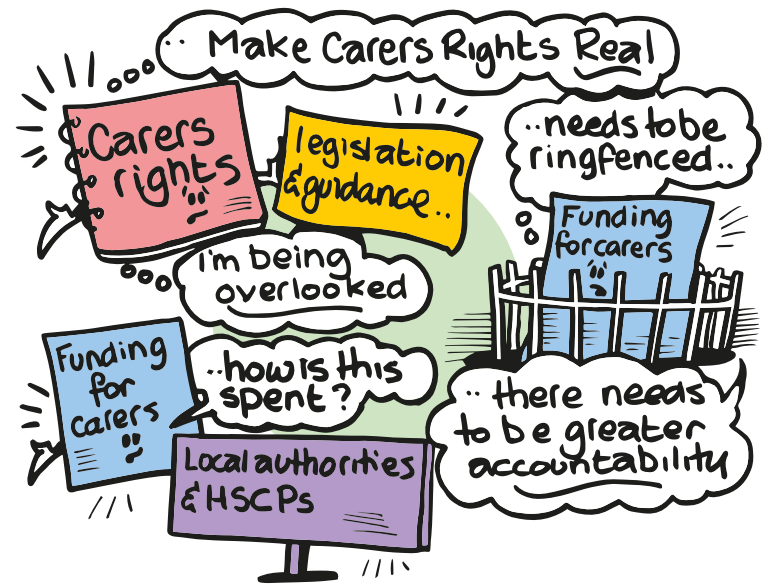 .. Make Carers Rights Real
Carers
rights
legislation
& guidance..
..needs to be
ringfenced..
Funding
for carers
I'm being
overlooked
Funding
for
carers
..how is this
spent?
.. there needs
to be greater
accountability
Local authorities
& HSCPs